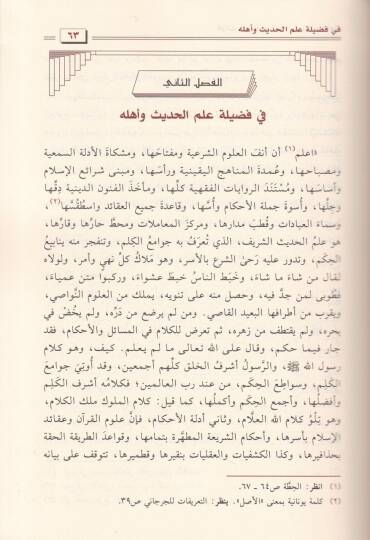 في فضيلة علم الحديث وأهله
٦٣
الفصل الثاني
في فضيلة علم الحديث وأهله
«اعلم(١) أن أنف العلوم الشرعية ومفتاحَها، ومشكاةَ الأدلة السمعية
ومصباحها، وعُمدةَ المناهج اليقينية ورأسَها، ومبنى شرائع الإسلام
وأساسَها، ومُسْتَنَدَ الروايات الفقهية كلِّها، ومأخذَ الفنون الدينية دِقِّها
وجِلِّها، وأسوةَ جملة الأحكام وأُسَّها، وقاعدةَ جميع العقائد واسطُقُسَّها(٢)،
وسماءَ العبادات وقُطبَ مدارها، ومركزَ المعاملات ومحطَّ حارِّها وقارِّها،
هو علمُ الحديث الشريف، الذي تُعرَفُ به جوامعُ الكلِم، وتنفجر منه ينابيعُ
الحِكَم، وتدور عليه رَحىٰ الشرع بالأسر، وهو مَلاكُ كلِّ نهيٍ وأمر، ولولاه
لقال من شاءَ ما شاءَ، وخَبَط الناسُ خبطَ عشواءَ، وركبوا متن عمياءَ،
فطُوبى لمن جدَّ فيه، وحصل منه على تنويه، يملك من العلوم النَّواصي،
ويقرب من أطرافها البعيد القاصي. ومن لم يرضع من دَرِّه، ولم يخُضْ في
بحره، ولم يقتطف من زهره، ثم تعرض للكلام في المسائل والأحكام، فقد
جار فيما حكم، وقال على الله تعالى ما لم يعلم. كيف، وهو كلام
رسول الله ﷺ، والرَّسولُ أشرفُ الخلق كلِّهم أجمعين، وقد أُوتِيَ جوامعَ
الكَلِم، وسواطِعَ الحِكَم، من عند رب العالمين؛ فكلامُه أشرف الكَلِم
وأفضلُها، وأجمع الحِكَم وأكملُها، كما قيل: كلام الملوك ملك الكلام،
وهو تِلْوُ كلام الله العلَّام، وثاني أدلة الأحكام، فإنَّ علوم القرآن وعقائد
الإسلام بأسرها، وأحكام الشريعة المطهَّرة بتمامها، وقواعدَ الطريقة الحقة
بحذافيرها، وكذا الكشفيات والعقليات بنقيرها وقطميرها، تتوقف على بيانه
(١) انظر: الحِطَّة ص٦٤ ـ ٦٧.
(٢) كلمة يونانية بمعنى «الأصل». ينظر: التعريفات للجرجاني ص٣٩.